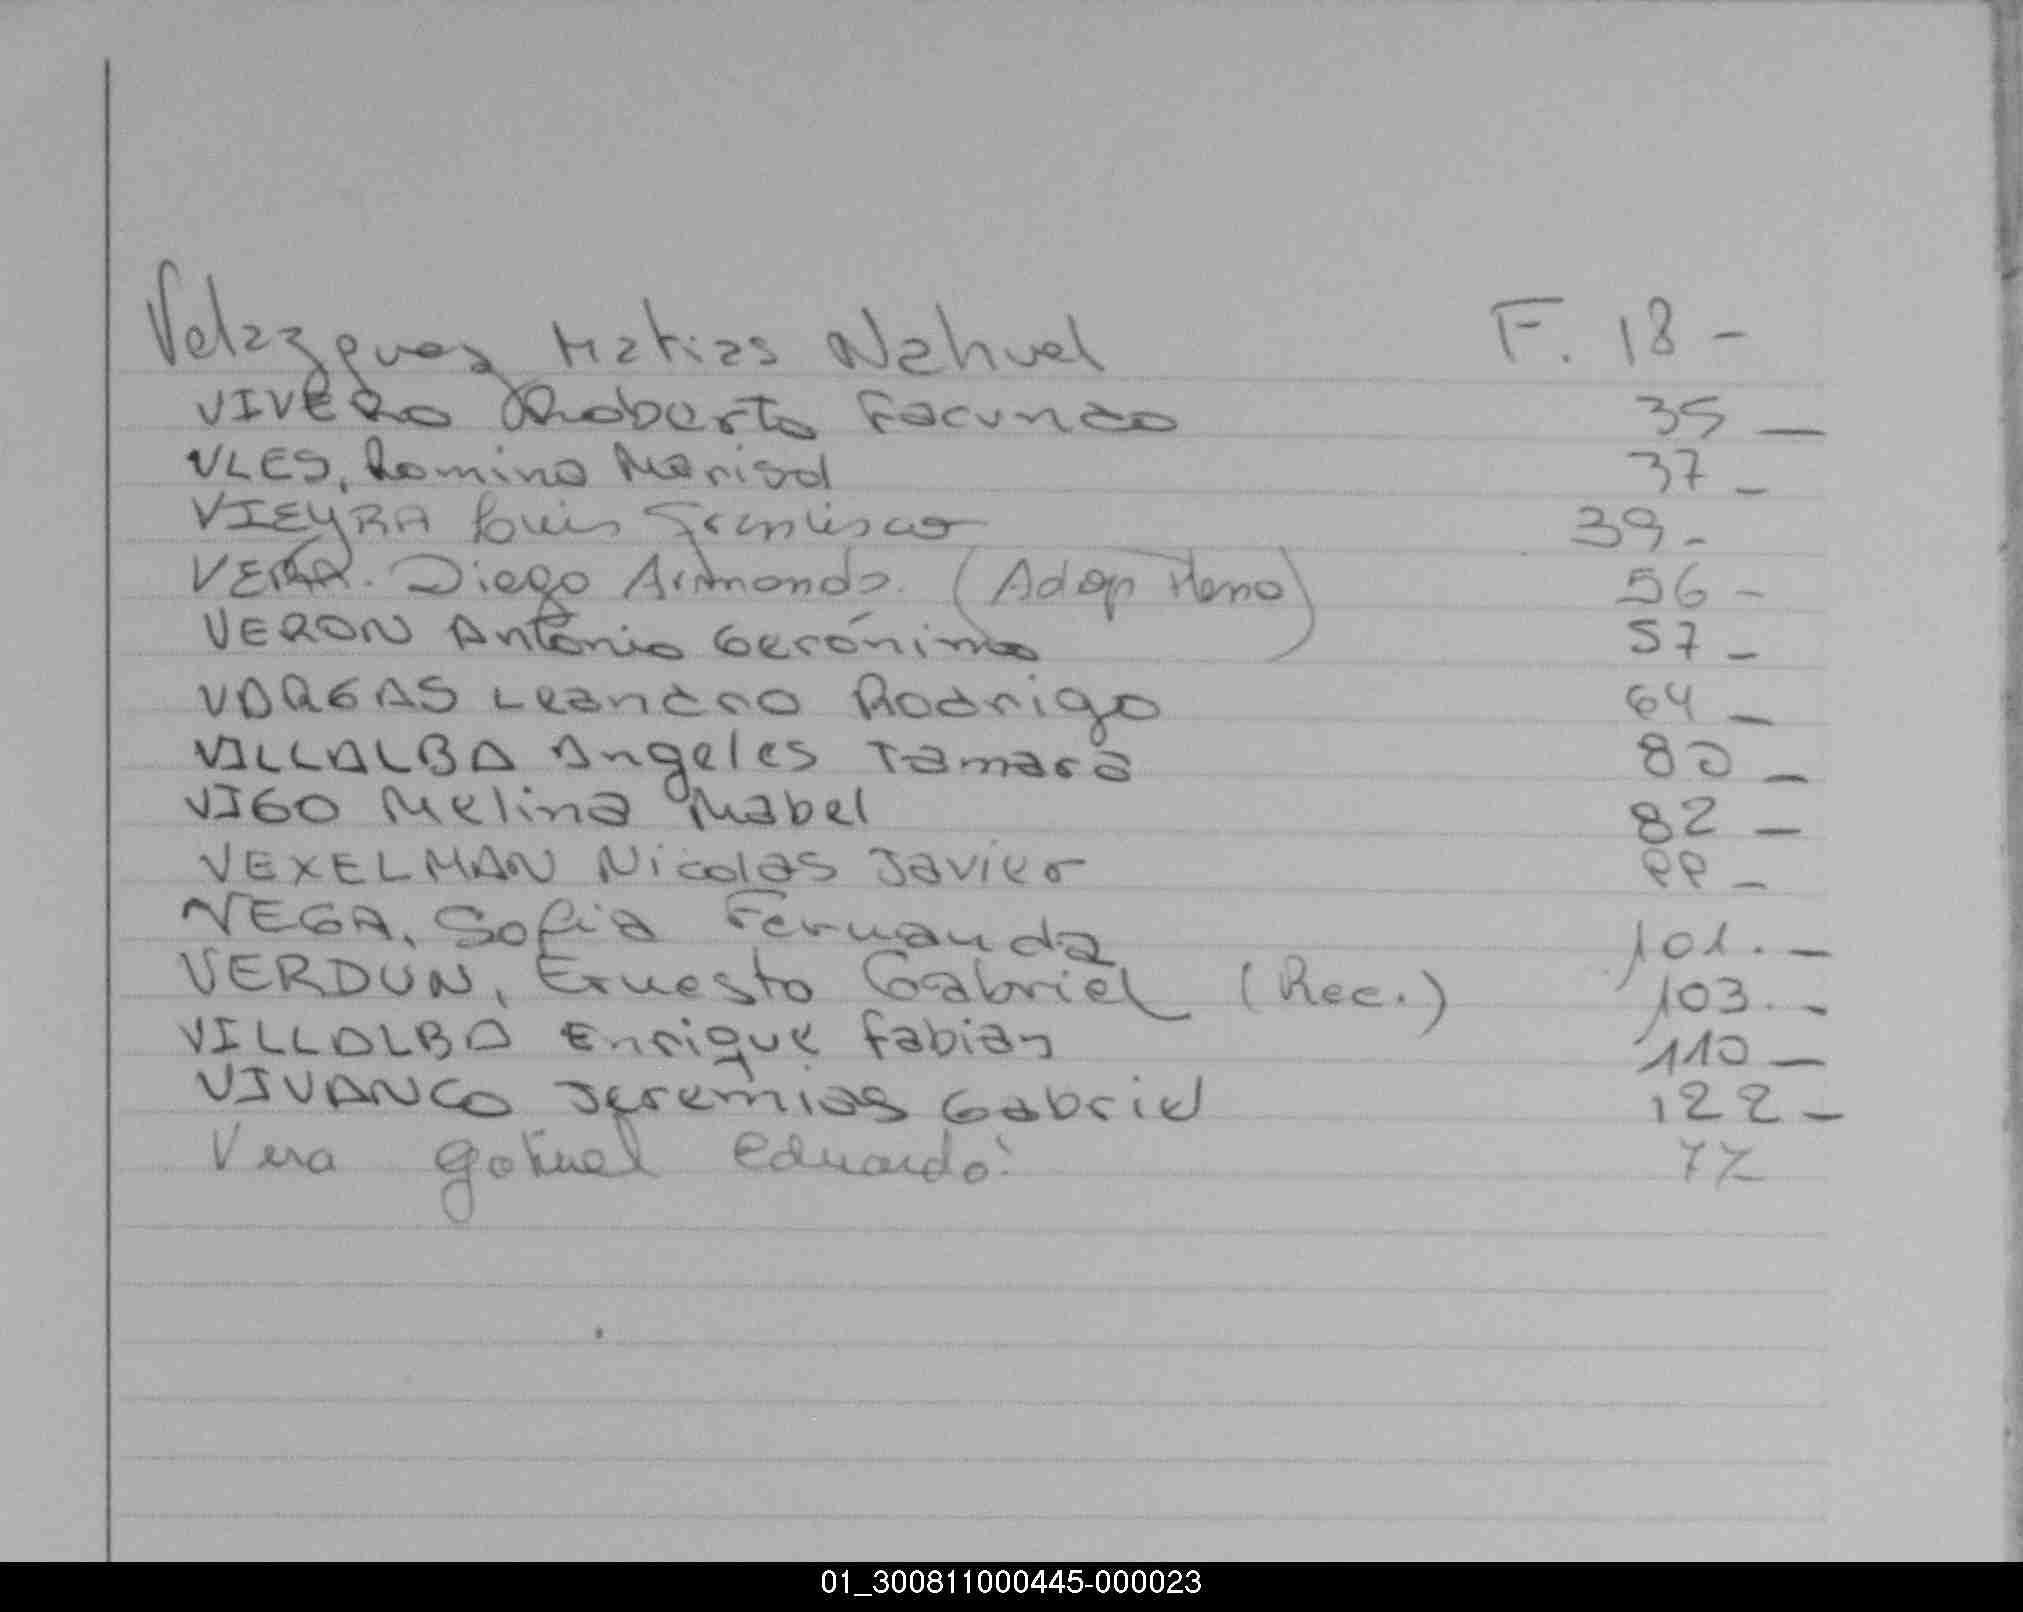 Velazquez Matias Nahuel F. 18 -
VIVERO Roberto Facundo 35 _
VLES, Romina Marisol 37 _
VIEYRA Luis Francisco 39 -
VERA. Diego Armando. (Adop Plena) 56 -
VERON Antonio Gerónimo 57 _
VARGAS Leandro Rodrigo 64 _
VILLALBA Angeles Tamara 80 _
VIGO Melina Mabel 82 _
VEXELMAN Nicolas Javier 99 _
VEGA, Sofia Fernanda 101. _
VERDUN, Ernesto Gabriel (Rec.) 103. _
VILLALBA Enrique Fabian 110 _
VIVANCO Jeremias Gabriel 122 _
Vera Gabriel Eduardo
01_300811000445-000023